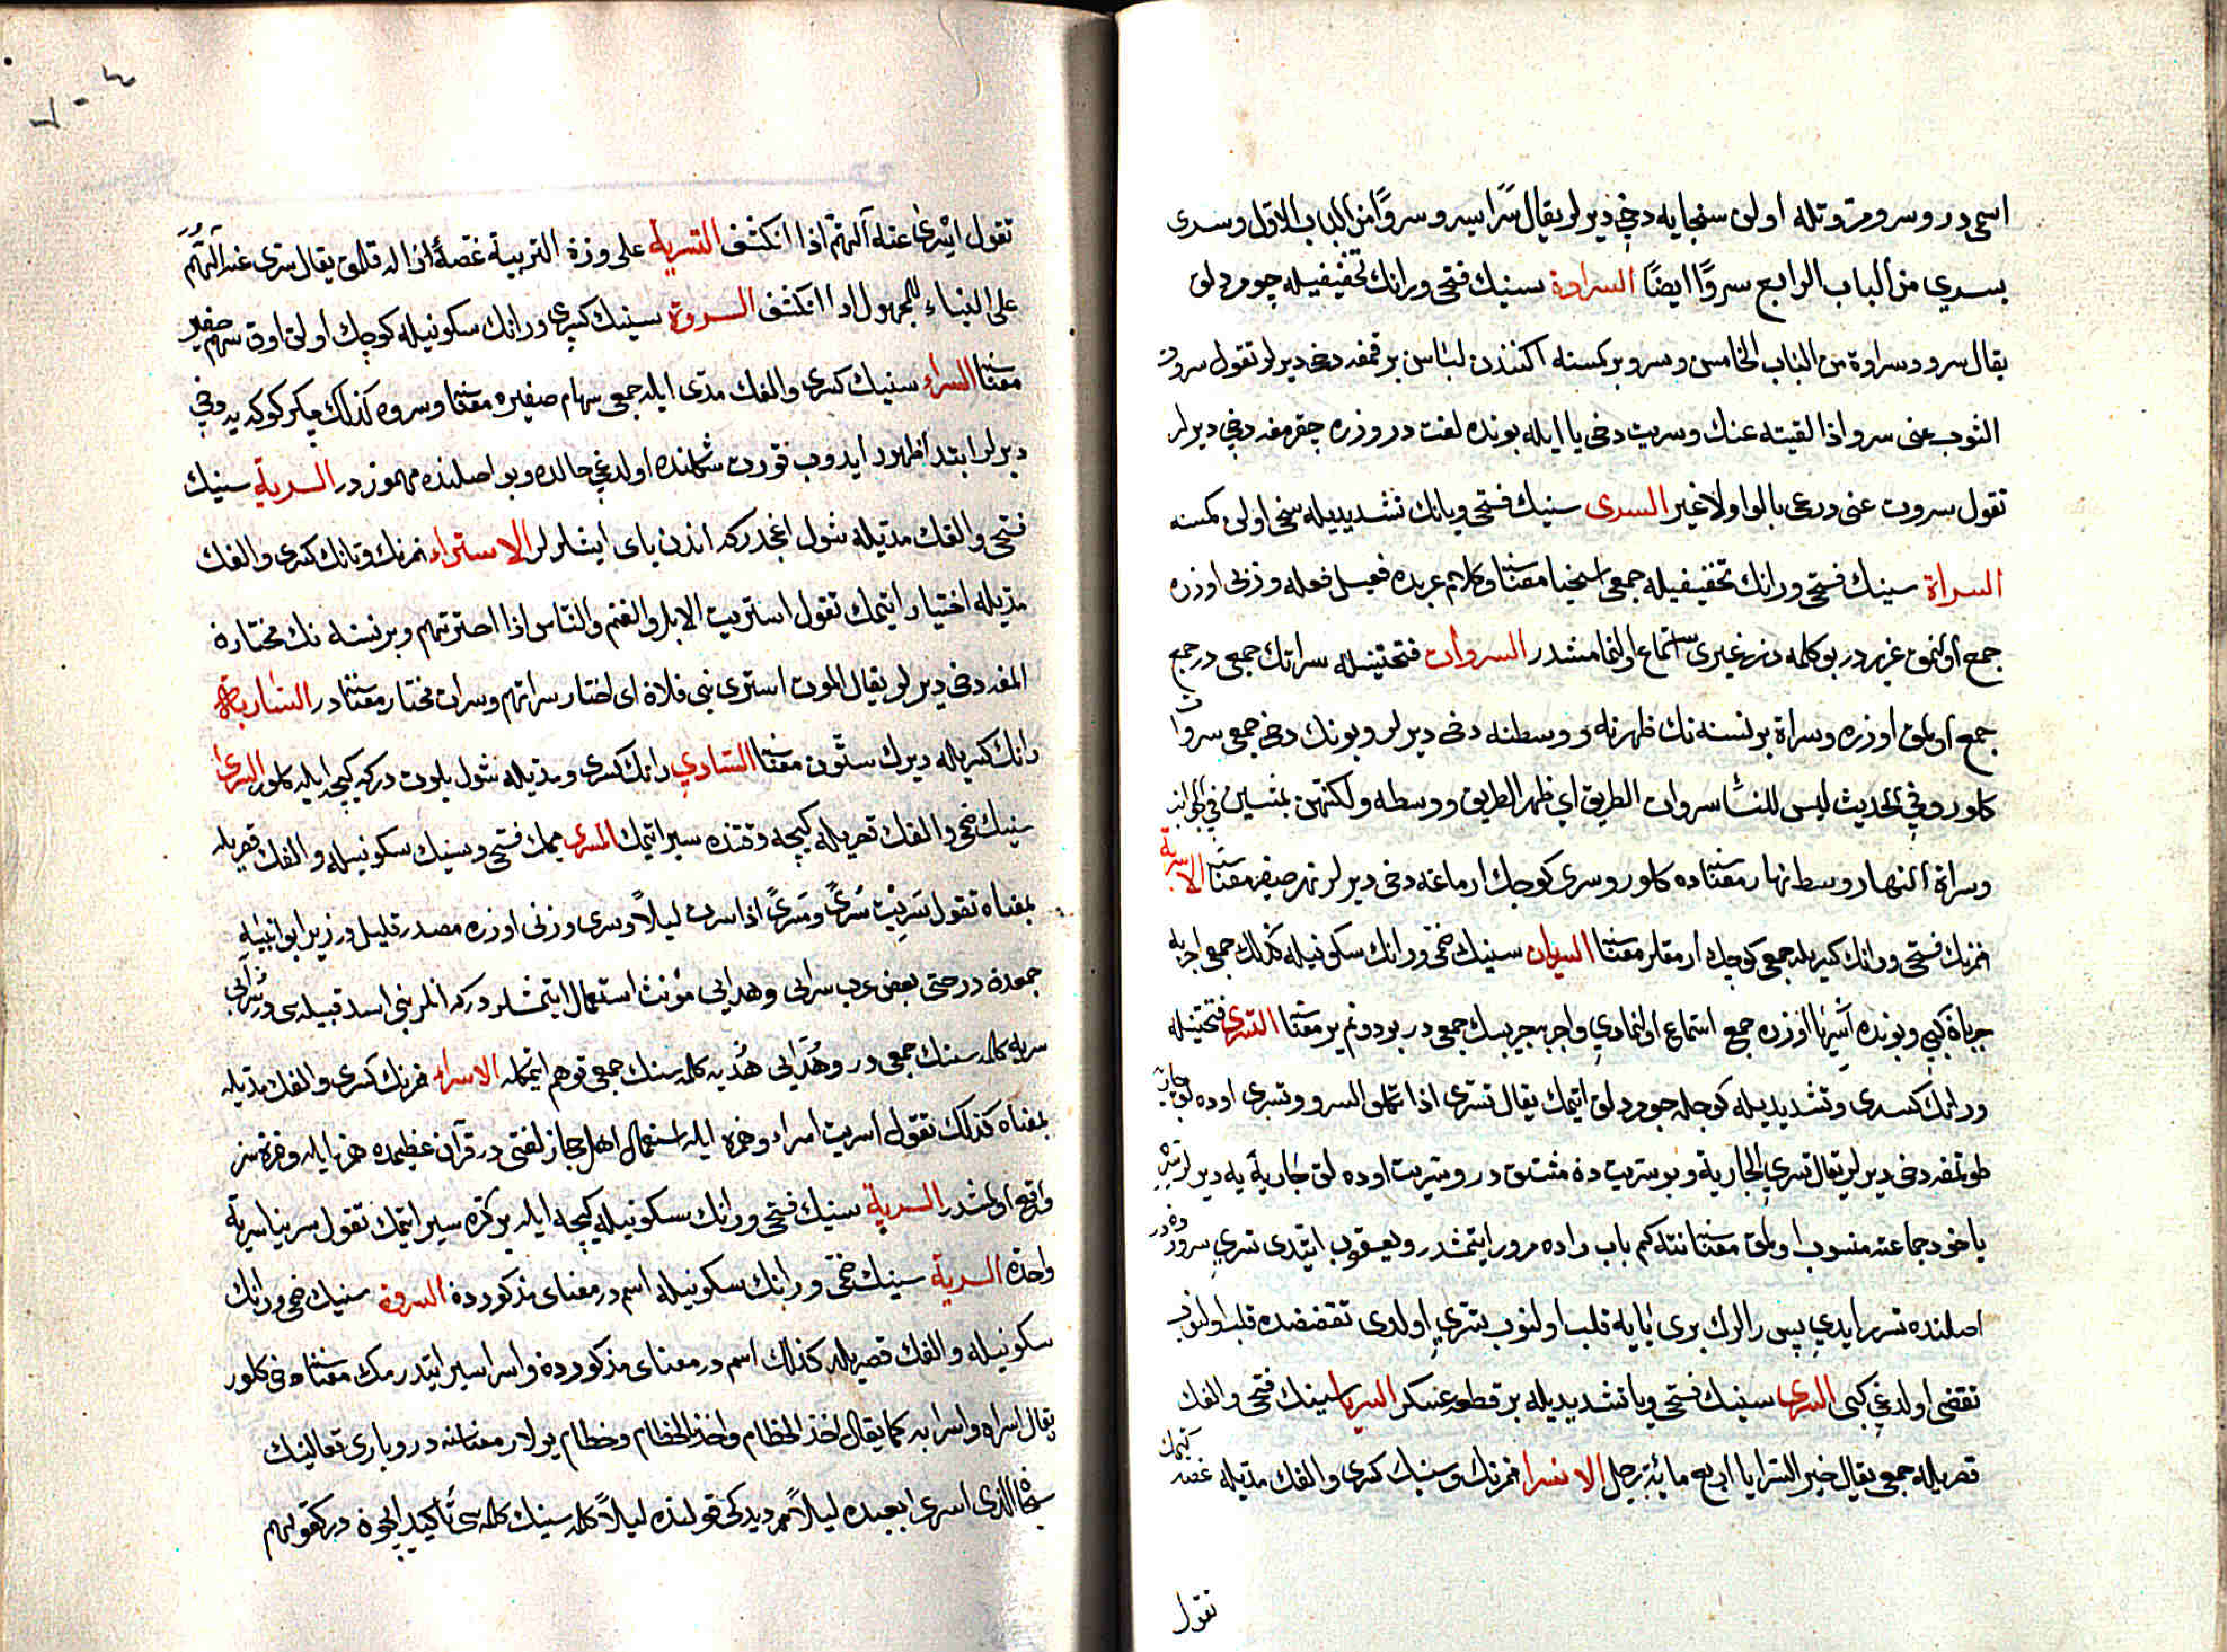 اسمی در و سرو مروتله اولی سنجایه دخی دیرلر یقال سرا یسرو سروا من الباب الاول وسری
یسری من الباب الرابع سروا ایضا السراوة سینك فتحی ورانك تخفیفیله جومردلق
یقال سرو سراوة من الباب الخامس وسرو بر كمسنه اكنندن لباس برقمغه دخی دیرلر تقول سروت
الثوب عنی سروا اذا القیته عنك وسریت دخی یا ایله بونده لغت در وزره چقرمغه دخی دیرلر
تقول سروت عنی درعی بالواو لا غیر السری سینك فتحی ویانك تشدیدیله سخی اولی كمسنه
السراة سینك فتحی ورانك تخفیفیله جمعی اسخیا معناسنه وكلام عربده فعیل فعله وزنی اوزره
جمع اولنمق عزیزدر بو كلمه دن غیری استماع اولنمامشدر السروات فتحتینله سراتك جمعی در جمع
جمع اولمق اوزره وسراة بر نسنه نك ظهرنه و وسطنه دخی دیرلر وبونك دخی جمعی سروات
كلور وفی الحدیث لیس للنساء سروات الطریق ای ظهر الطریق ووسطه ولكنهن یمشین فی الجوانب
وسراة النهار وسط نهار معناسنه ده كلور وسری كوچك ارماغه دخی دیرلر نهر صغیر معناسنه الاسریة
همزنك فتحی ورانك كسریله جمعی كوچك ارمقلر معناسنه السریان سینك ضمی ورانك سكونیله كذلك جمعی اجربه
جربان كبی وبونده اسریا اوزره جمع استماع اولنمادی واجربه جریبك جمعی در بر دونم یر معناسنه التسری فتحتینله
ورانك كسری وتشدیدیله كوجله جومردلق ایتمك یقال تسری اذا تكلف السرو وتسری اوده لق جاریه
طوتمغه دخی دیرلر یقال تسری الجاریة وبو سریت دن مشتق در وسریت اوده لق جاریه یه دیرلر سره
یاخود جماعه منسوب اولمق معناسنه نته كم باب راده مرور ایتمشدر ویعقوب ایتدی تسری سروردن در
اصلنده تسرر ایدی پس رالرك بری یایه قلب اولنوب تسری اولدی تقضضده قلب اولنوب
تقضی اولدغی كبی السریه سینك فتحی ویا تشدیدیله بر قطعه عسكر السرایا سینك فتحی والفك
قصریله جمعی یقال خیر السرایا اربع مائة رجل الانسرا همزنك وسینك كسری والفك مدیله غصه كتمك
تقول
تقول انسری عنه الهم اذا انكشف التسریه علی وزن التربیة غصه ازاله قلمق یقال سری عنه الهم
علی البناء للمجهول اذا انكشف السروة سینك كسری ورانك سكونیله كوچك اولی اوق سهم صغیر
معناسنه السراء سینك كسری والفك مدی ایله جمعی سهام صغیره معناسنه وسروه كذلك چكركوكه یه دخی
دیرلر ابتدا ظهور ایدوب قورت شكلنده اولدغی حالده وبو اصلنده مهموزدر السریة سینك
فتحی والفك مدیله شول اغجدركه اندن یای ایشلرلر الاستراء همزنك وتانك كسری والفك
مدیله اختیار ایتمك تقول استریت الابل والغنم والناس اذا اخترتهم وبر نسنه نك مختارة
المغه دخی دیرلر یقال الموت استری بنی فلان ای اختار سراتهم وسرات مختار معناسنه در الساریة
رانك كسریله دیرك ستون معناسنه الساری رانك كسری ومدیله شول بلوت دركه كیجه ایله كلور السری
سینك ضمی والفك قصریله كیجه وقتنده سیر ایتمك المسری میمك فتحی وسینك سكونیله والفك قصریله
بمعناه تقول سریت سری ومسری اذا سرت لیلا وسری وزنی اوزره مصدر قلیل در زیرا بو ابنیه
جمعدن در حتی بعض عرب سرای وهدایی مؤنث استعمال ایتمشلر دركه انلر بنی اسد قبیله سی در سرایی
سریه كلمه سنك جمعی در وهدایی هدیه كلمه سنك جمعی توهم ایتمكله الاسراء همزنك كسری والفك مدیله
بمعناه كذلك تقول اسریت اسراء وهمزه ایله استعمال اهل حجاز لغتی در قرآن عظیمده همزه ایله وهمزه سز
واقع اولمشدر السریة سینك فتحی ورانك سكونیله كیجه ایله بر كره سیر ایتمك تقول سرینا سریة
واحده السریة سینك ضمی ورانك سكونیله اسم در معنای مذكوردن السروة سینك ضمی ورانك
سكونیله والفك قصریله كذلك اسم در معنای مذكوردن واسرا سیر ایتدرمك معناسنه دخی كلور
یقال اسراه واسرا به كما یقال اخذ الخطام واخذ بالخطام وخطام یولار معناسنه در وباری تعالینك
سبحان الذی اسری بعبده لیلا مر دیدكی قولنده لیلا كلمه سینك كلمه سی تأكید ایچون در كقولهم